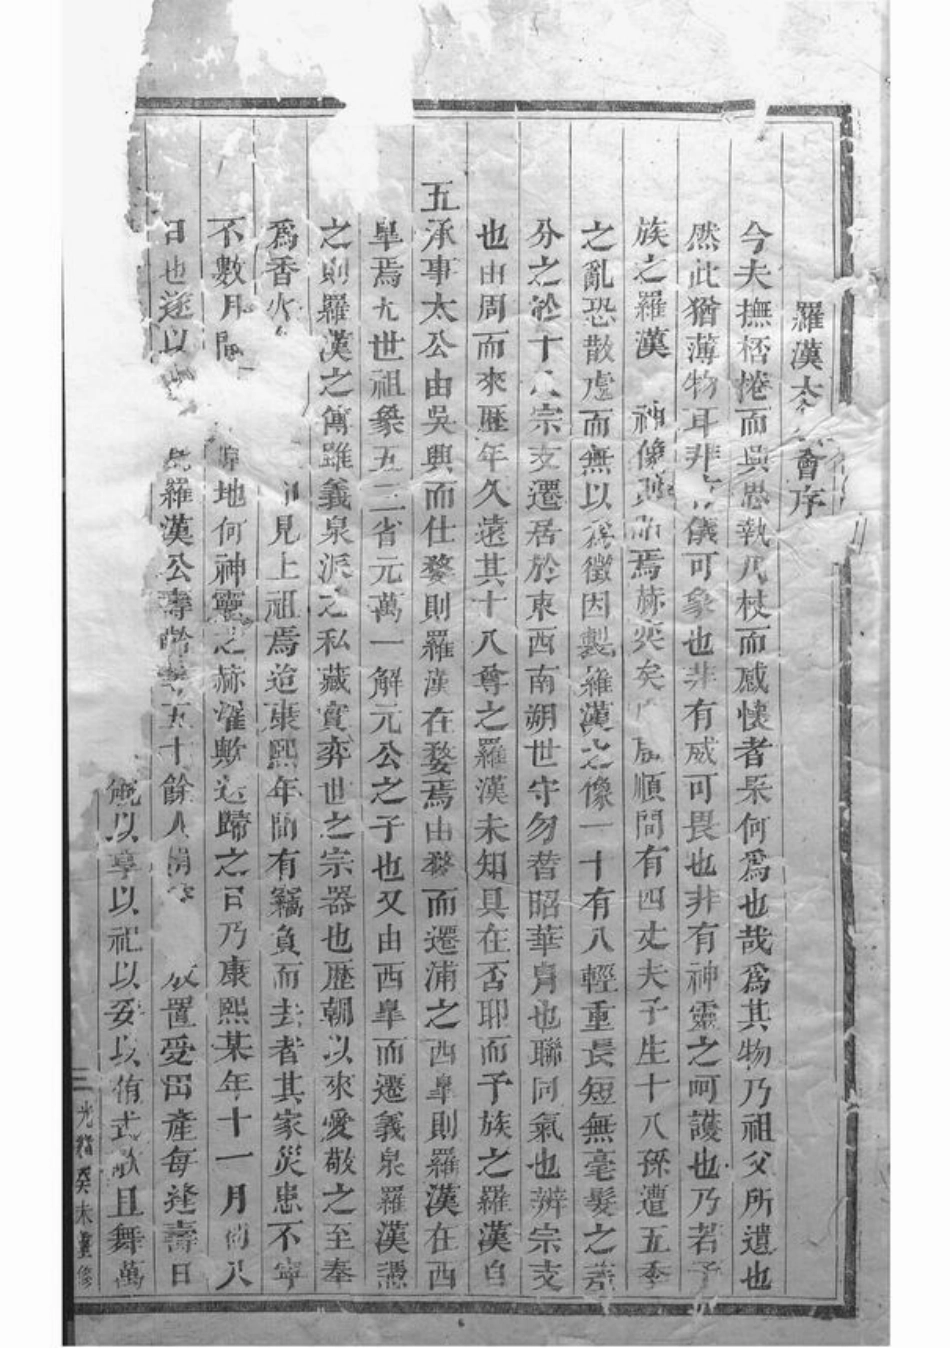 羅漢大會序
今夫撫桮棬而興思執几杖而感懷者杲何爲也哉爲其物乃祖父所遺也
然此猶薄物耳非有儀可象也非有威可畏也非有神靈之呵護也乃若予
族之羅漢 神像
焉赫奕矣 順間有四丈夫子生十八孫遭五季
之亂恐散處而無以爲徵因製羅漢之像一十有八輕重長短無毫髮之差
分之於十八宗支遷居於東西南朔世守勿替昭華冑也聯同氣也辨宗支
也由周而來歷年久遠其十八尊之羅漢未知具在否耶而予族之羅漢自
五承事太公由吳興而仕婺則羅漢在婺焉由婺而遷浦之西臯則羅漢在西
臯焉九世祖彖五二省元萬一解元公之子也又由西臯而遷義泉羅漢憑
之則羅漢之傳雖義泉派之私藏實弈世之宗器也歷朝以來愛敬之至奉
爲香火 見上祖焉迨康熙年間有竊負而去者其家災患不寧
不數月 地何神靈之赫濯歟迄歸之日乃康熙某年十一月 八
日也遂以 羅漢公壽 五十餘人捐 放置受田產每逢壽日
以享以祀以妥以侑式歌且舞萬
三 光緒癸未重修